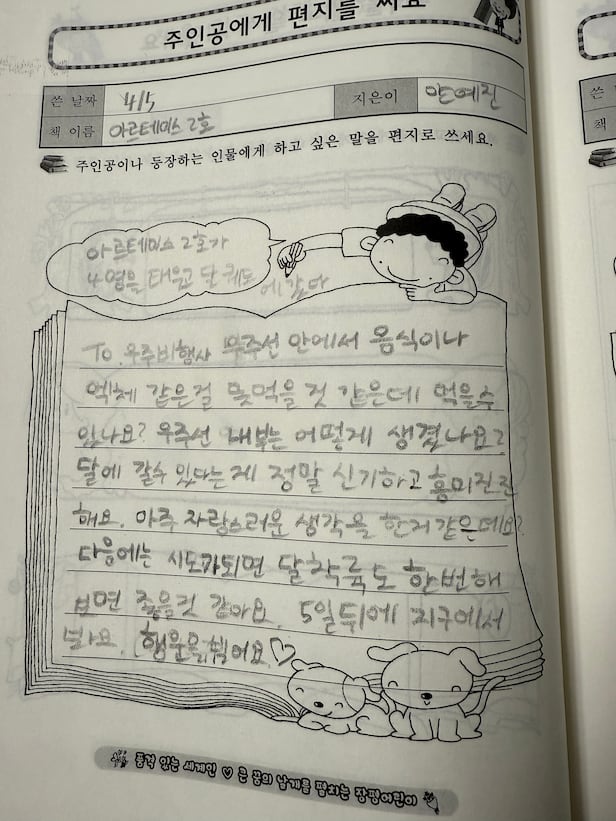 주인공에게 편지를 써요
쓴 날짜 4/5 지은이 안예진
책 이름 아르테미스 2호
주인공이나 등장하는 인물에게 하고 싶은 말을 편지로 쓰세요.
아르테미스 2호가
4명을 태우고 달 궤도에 갔다
To. 우주비행사 우주선 안에서 음식이나
액체 같은걸 못먹을 것 같은데 먹을수
있나요? 우주선 내부는 어떻게 생겼나요?
달에 갈수 있다는게 정말 신기하고 흥미진진
해요. 아주 자랑스러운 생각을 한거 같은데요?
다음에는 시도가되면 달착륙도 한번 해
보면 좋을것 같아요. 5일뒤에 지구에서
봐요. 행운을 빌어요♡
품격 있는 세계인 ♡ 큰 꿈의 날개를 펼치는 장평어린이